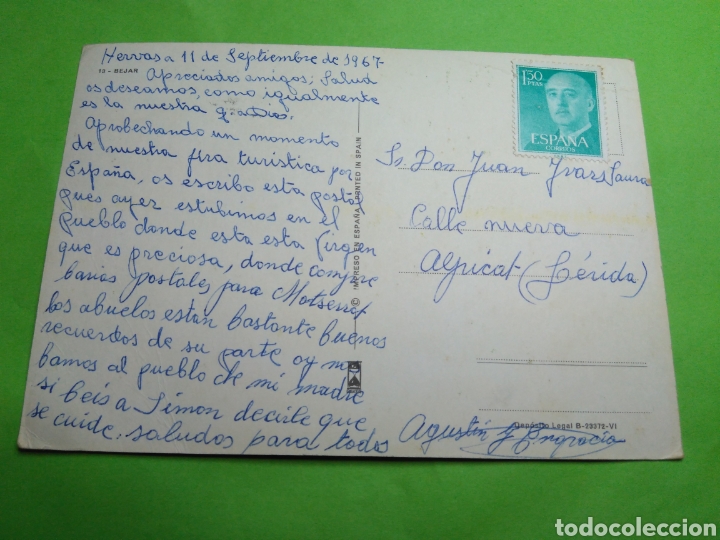 Hervas a 11 de Septiembre de 1967
13 - BEJAR
Apreciados amigos; Salud
os deseamos, como igualmente
es la nuestra g. a Dios.
Aprobechando un momento
de nuestra jira turistica por
España, os escribo esta postal
pues ayer estubimos en el
pueblo donde esta esta Virgen
que es preciosa, donde compre
barias postales para Motserrat
los abuelos estan bastante buenos
recuerdos de su parte oy
bamos al pueblo de mi madre
si beis a Simon decirle que
se cuide. saludos para todos
Agustin y Engracia
© IMPRESO EN ESPAÑA PRINTED IN SPAIN
1,50
PTAS
ESPAÑA
CORREOS
Sr. Don Juan Ivars Saura
Calle nueva
Alpicat (Lérida)
Depósito Legal B-23372-VI
todocoleccion
todocoleccion.net